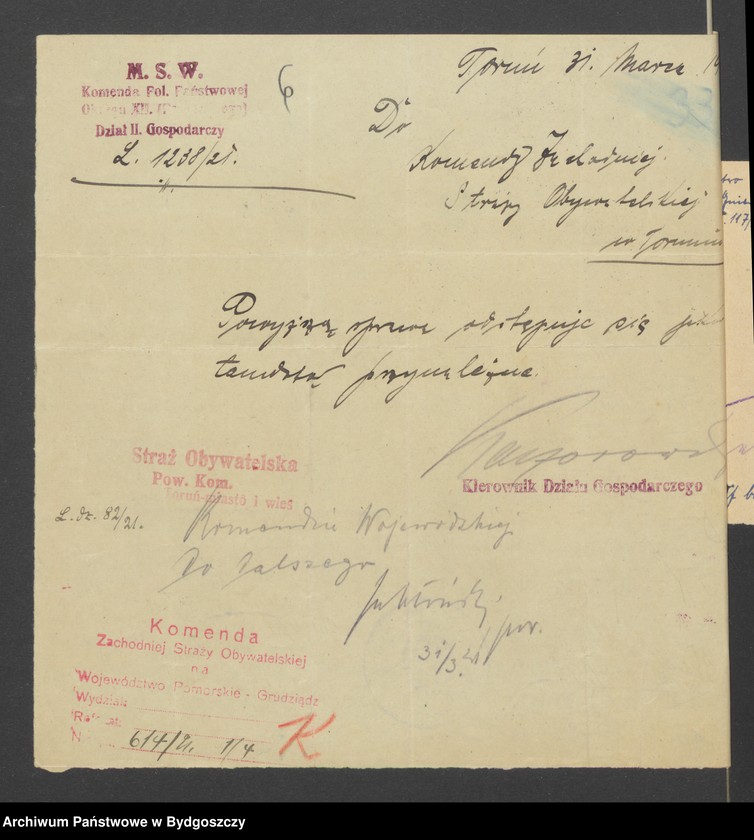 M. S. W.
Komenda Pol. Państwowej
Okręgu XII.
Dział II. Gospodarczy
L. 1238/21.
6
Toruń 31. Marca
Do
Komendy
Straży Obywatelskiej
w Toruniu
Powyższą sprawę odstępuje się jako
tamdotą przynależną.
Kierownik Działu Gospodarczego
Straż Obywatelska
Pow. Kom.
Toruń-miasto i wieś
L. dz. 82/21.
Komendzie Wojewódzkiej
Do dalszego
por.
31/3.21
Komenda
Zachodniej Straży Obywatelskiej
na
Województwo Pomorskie - Grudziądz
Wydział:
Referat:
N 614/21. 1/4
K
Archiwum Państwowe w Bydgoszczy